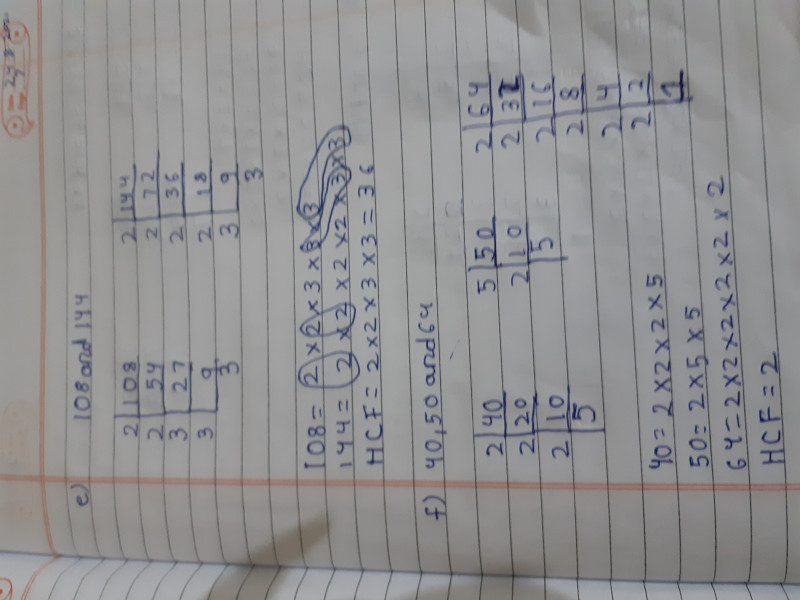 e) 108 and 144
2 108 2 144
2 54 2 72
3 27 2 36
3 9 2 18
3 3 9
3
108 = 2 × 2 × 3 × 3 × 3
144 = 2 × 2 × 2 × 2 × 3 × 3
HCF = 2 × 2 × 3 × 3 = 36
f) 40, 50 and 64
2 40 5 50 2 64
2 20 2 10 2 32
2 10 5 2 16
5 2 8
2 4
2 2
1
40 = 2 × 2 × 2 × 5
50 = 2 × 5 × 5
64 = 2 × 2 × 2 × 2 × 2 × 2
HCF = 2